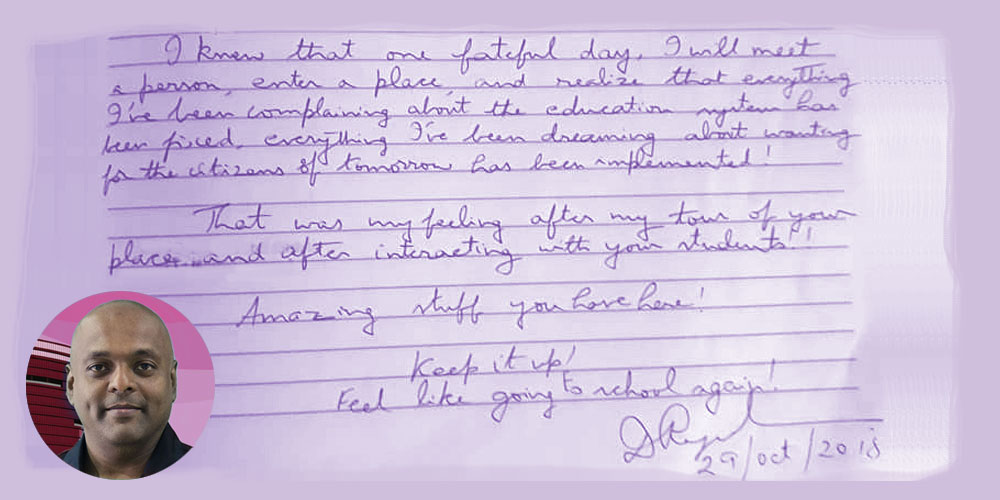 I knew that one fateful day, I will meet
a person, enter a place, and realize that everything
I've been complaining about the education system has
been fixed, everything I've been dreaming about wanting
for the citizens of tomorrow has been implemented!
That was my feeling after my tour of your
place and after interacting with your students!!
Amazing stuff you have here!
Keep it up!
Feel like going to school again!
29/oct/2018